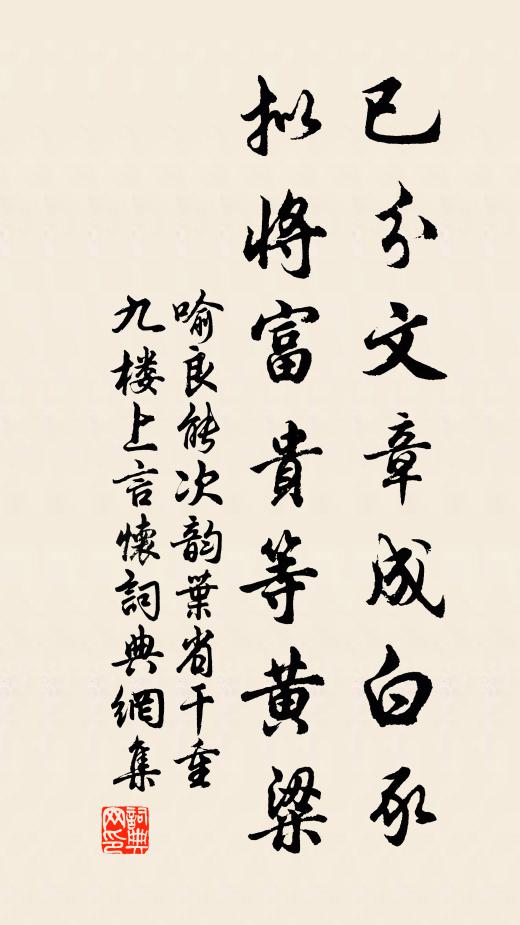 已分文章成白豕
拟将富貴等黄粱
喻良能次韵葉省干重
九楼上言懷詞典網集
詞典
网印